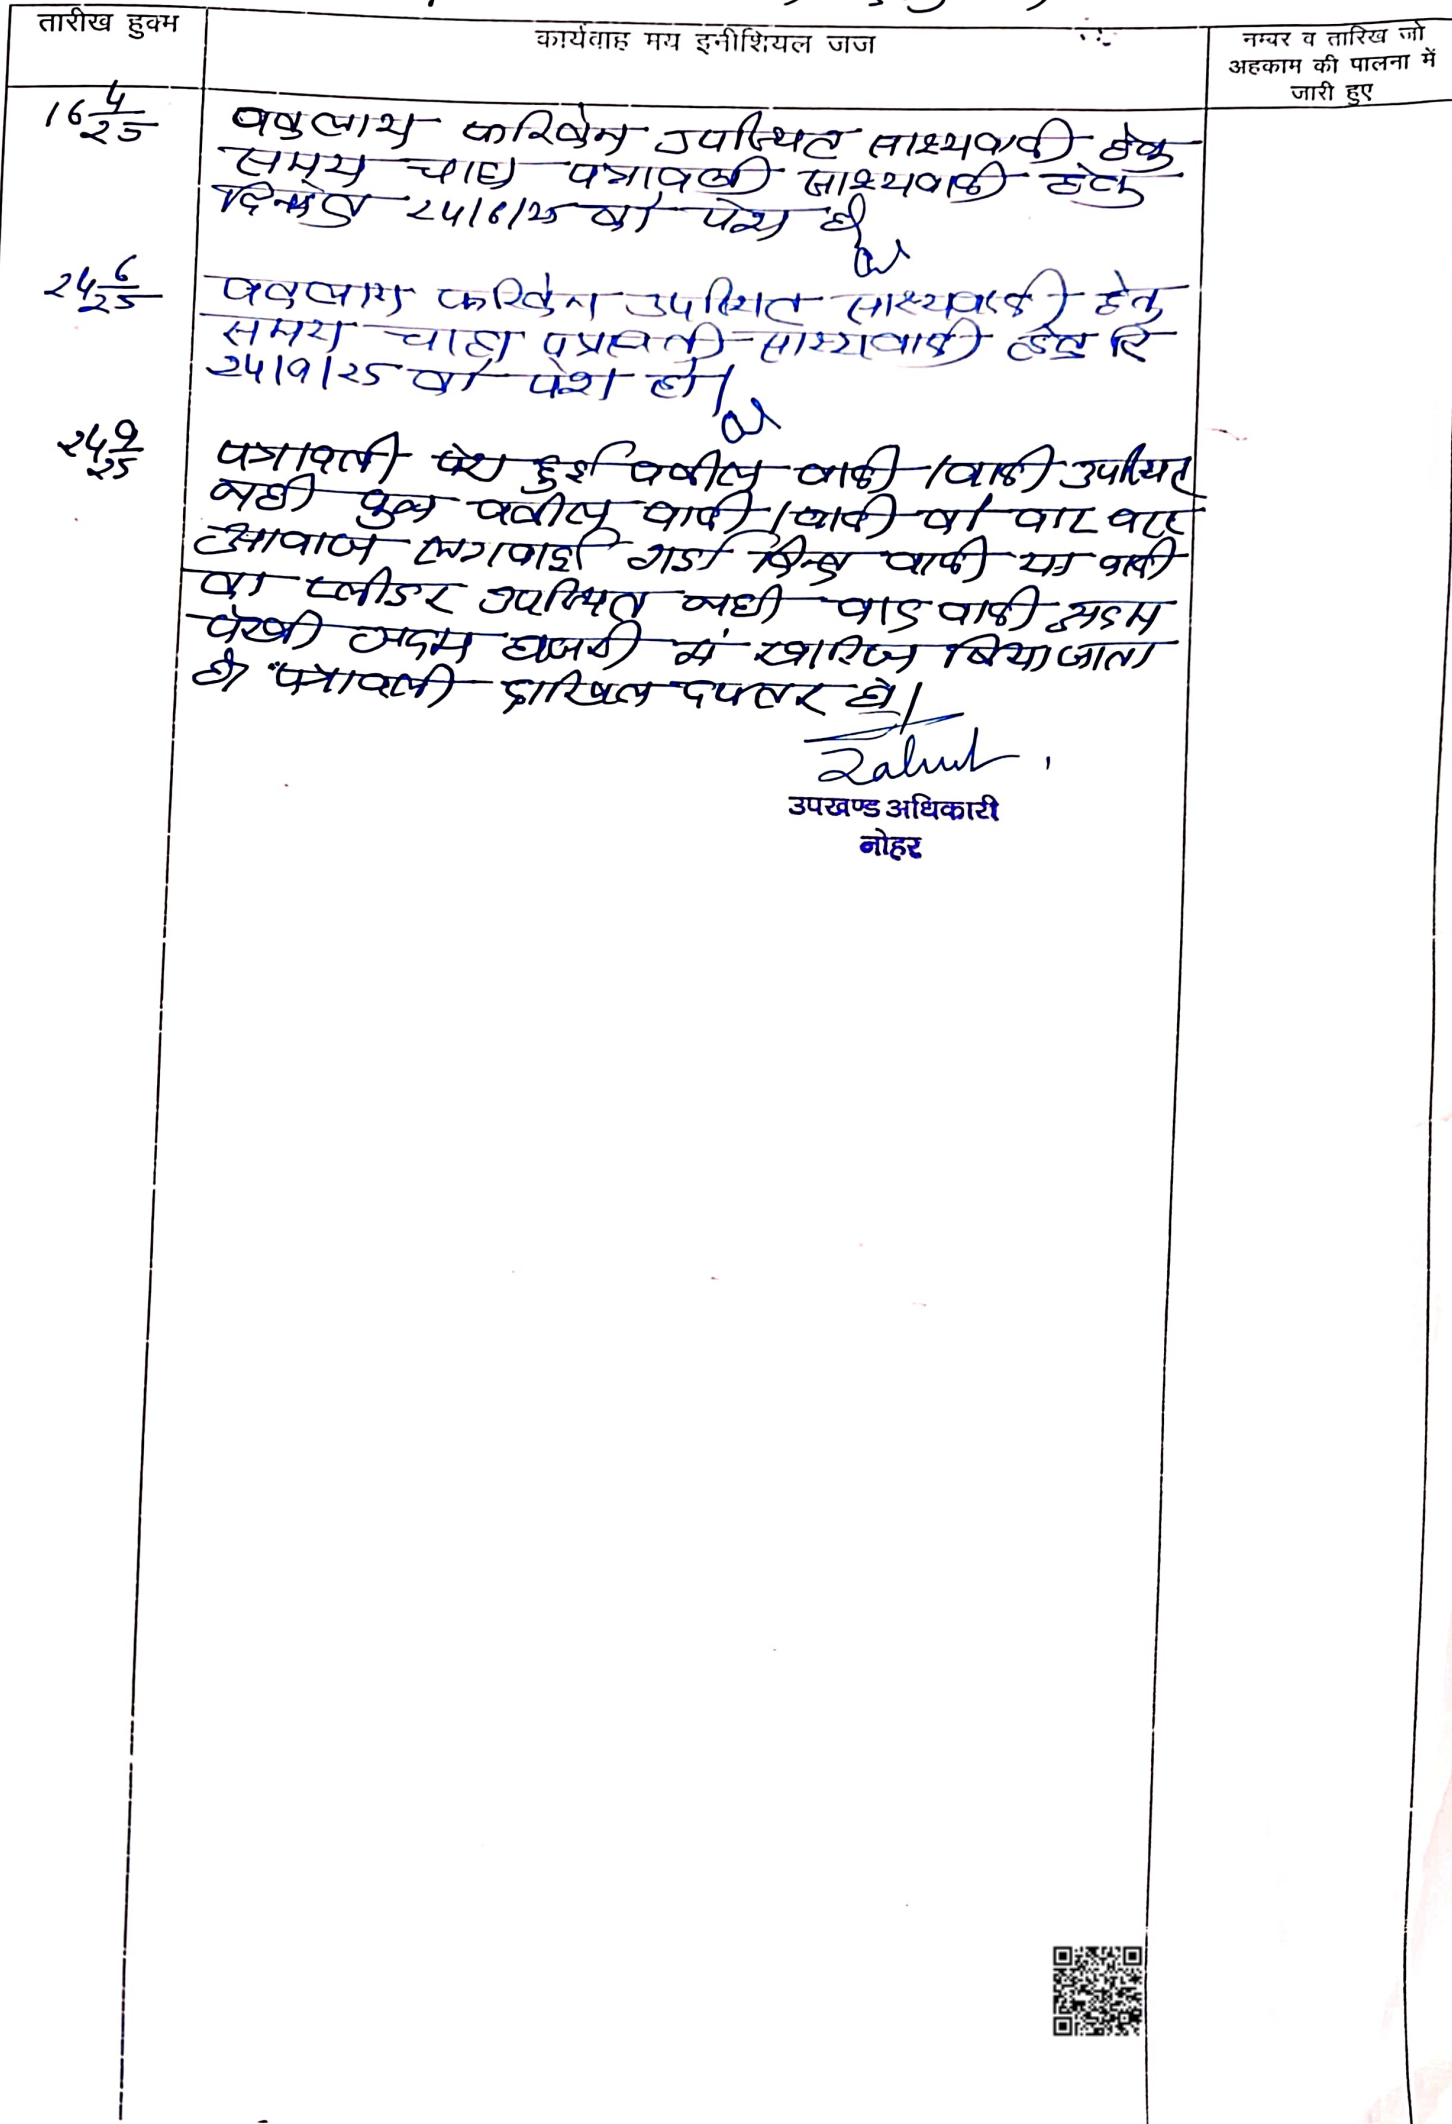 तारीख हुक्म
कार्यवाह मय इनीशियल जज
नम्बर व तारिख जो
अहकाम की पालना में
जारी हुए
16 4/25
वकुलाय फरिकेन उपस्थित साक्ष्यवादी हेतु
समय चाहा पत्रावली साक्ष्यवादी हेतु
दिनांक 24/6/25 को पेश हो
24 6/25
वकुलाय फरिकेन उपस्थित साक्ष्यवादी हेतु
समय चाहा पत्रावली साक्ष्यवादी हेतु दि
24/9/25 को पेश हो।
24 9/25
पत्रावली पेश हुई वकील वादी/वादी उपस्थित
नही वकील वादी/वादी को बार बार
आवाज लगवाई गई किन्तु वादी या वादी
का प्लीडर उपस्थित नही वाद वादी अदम
पेरवी अदम हाजरी में खारिज किया जाता
है पत्रावली दाखिल दफ्तर हो।
उपखण्ड अधिकारी
नोहर